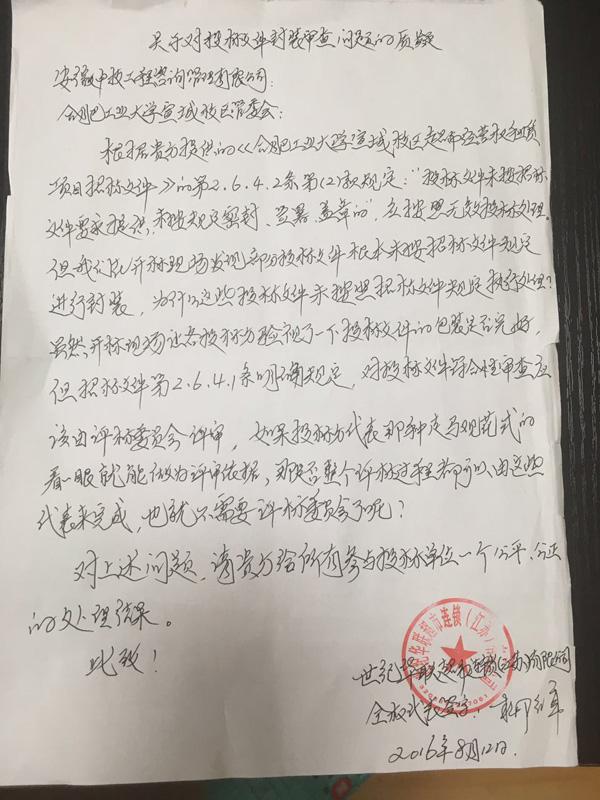 关于对投标文件封装审查问题的质疑
安徽中技工程咨询管理有限公司:
合肥工业大学宣城校区管委会:
根据贵方提供的《合肥工业大学宣城校区超市经营权租赁
项目招标文件》的第2.6.4.2条第(2)款规定:"投标文件未按招标
文件要求提供,未按规定密封、签署、盖章的",应按照无效投标处理。
但我们从开标现场发现部分投标文件根本未按招标文件规定
进行封装,为什么这些投标文件未按照招标文件规定执行处理?
虽然开标现场让各投标方验视了一下投标文件的包装是否完好,
但招标文件第2.6.4.1条明确规定,对投标文件符合性审查应
该由评标委员会评审,如果投标方代表那种走马观花式的
看一眼就能做为评审依据,那是否整个评标过程都可以由这些
代表来完成,也就不需要评标委员会了呢?
对上述问题,请贵方给所有参与投标单位一个公平、公正
的处理结果。
此致!
世纪华联超市连锁(江苏)有限公司
全权代表签字:
2016年8月12日
华联超市连锁(江苏)